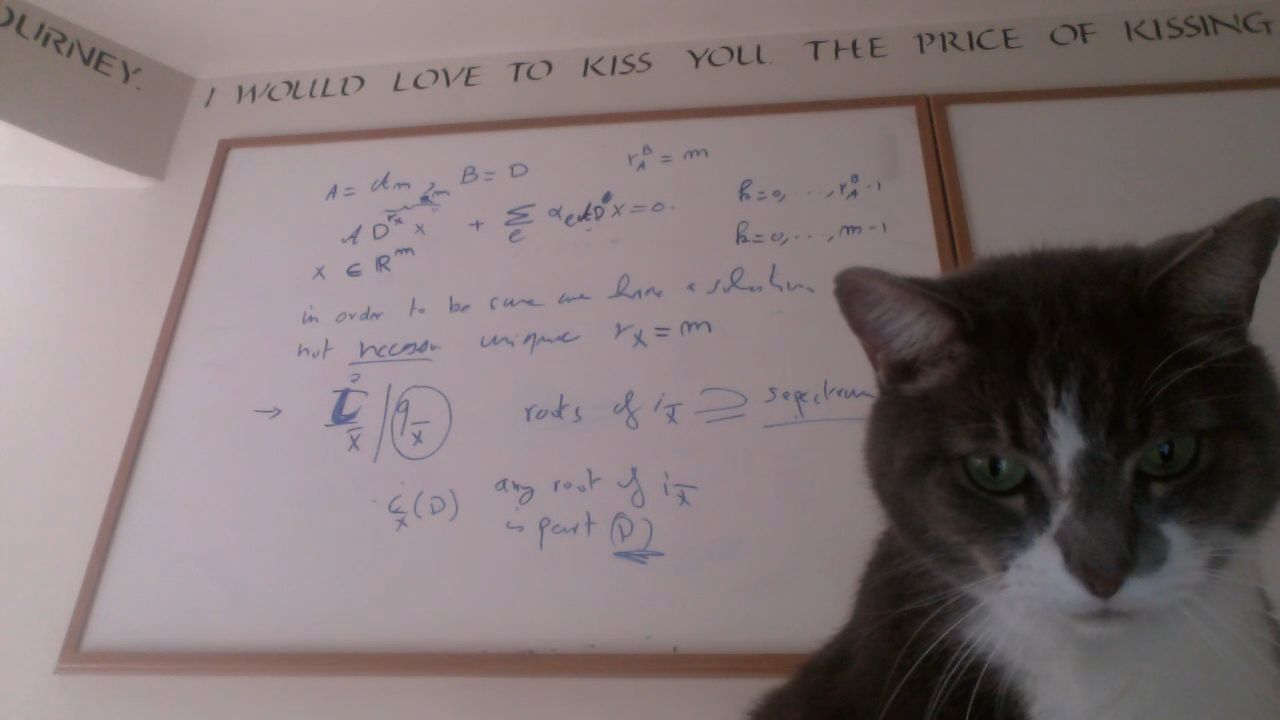 OURNEY.
I WOULD LOVE TO KISS YOU. THE PRICE OF KISSING
A = B = D
r_A^B = m
A D^{r_x} x + Σ_e α_e A D^e x = 0.
k=0, ..., r_A^B-1
k=0, ..., m-1
x ∈ ℝ^m
in order to be sure we have a solution
not unique r_x = m
→
roots of i_x̄ ⊇ spectrum
(D)
any root of i_x̄
is part (D)